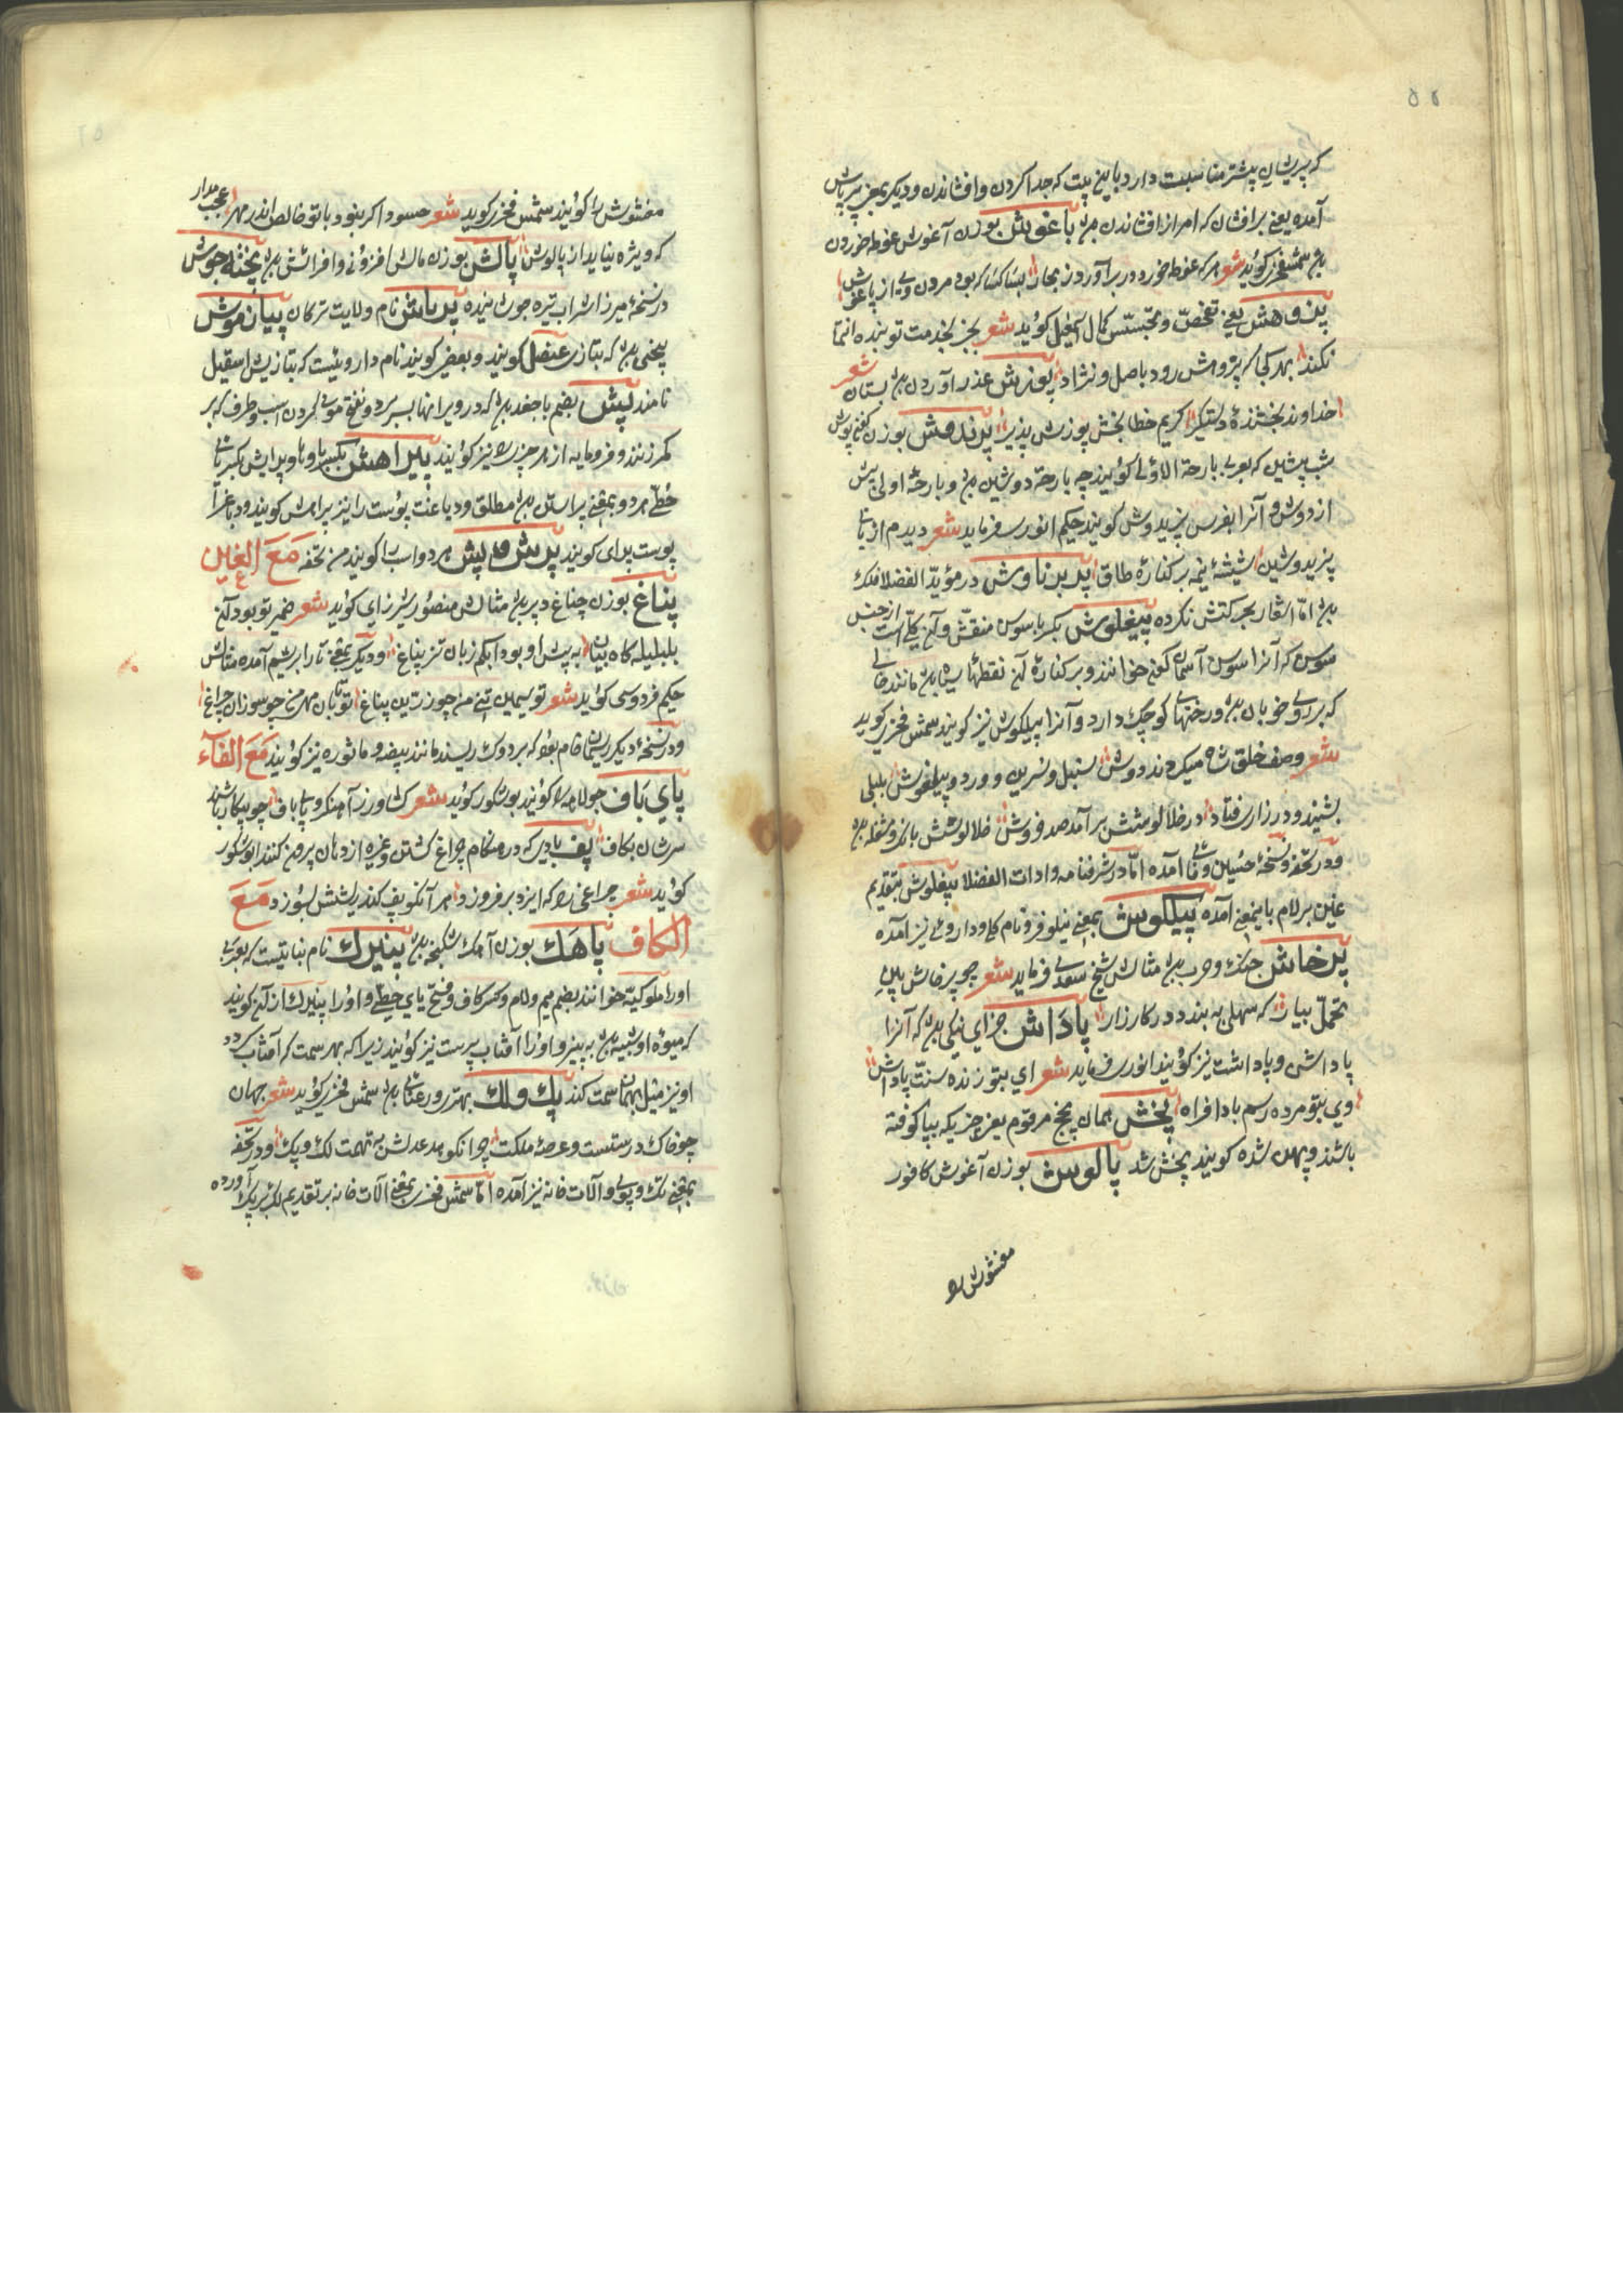 ۵۵
که پریشان پیشتر مناسبت دارد باین بیت که جدا کردن و افشاندن و دیکر بمعنی پرباش
آمده یعنی برافشان که امر از افشاندن بود پاغوش بوزن آغوش غوطه خوردن
بود شمس فخری کوید شعر هر که غوطه خورد در برآورد ز بحار بسا کسا که بود مردن وی از پاغوش
پژوهش یعنی تفحّص و تجسّس کمال اسمعیل کوید شعر بجز بخدمت تو بنده انتما
نکند بهر کجا که پژوهش رود باصل و نژاد پوزش عذر آوردن بود بستان شعر
خداوند بخشندهٔ دستکیر کریم خطا بخش پوزش پذیر پرندوش بوزن
شب پیشین که بعربی بارحة الاولی کویند چه بارحة دوشین بود و بارحة اولی پیش
از دوش و آنرا بفرس پریدوش کویند حکیم انوری فرماید شعر دیدم از پای
پریدوشین شیشهٔ نیمه بر کنارهٔ طاق پدبدناوش در مؤیّد الفضلا فلک
بود امّا اشعار بحرکتش نکرده پیغلوش بکر یا سوسن منقّش و آن کلی است از جنس
سوسن که آنرا سوسن آسمان کونی خوانند و بر کنارهٔ آن نقطها سیاه بود مانند خالی
که بر روی خوبان بود و رخنهای کوچک دارد و آنرا پیلکوش نیز کویند شمس فخری کوید
شعر وصف خلق شاه میکردند دوش سنبل و نسرین و ورد و پیلغوش بلبلی
بشنید و در زاری فتاد در خلالوشش برآمد صد فروش خلالوشش بانک و مشغله بود
و در تحفه و نسخهٔ حسین وفائی آمده امّا در شرفنامه و ادات الفضلا پیغلوش بتقدیم
غین بر لام باینمعنی آمده پیلکوش بمعنی نیلوفر و نام کلی و داروئی نیز آمده
پرخاش جنک و حرب بود مثالش شیخ سعدی فرماید شعر چو پرخاش بینی
تحمّل بیار که سهلی ببندد در کارزار پاداش جزای نیکی بود که آنرا
پاداشی و پاداشت نیز کویند انوری فرماید شعر ای بتو زنده سنّت پاداش
وی بتو مرده رسم بادافراه پخش بمان پخج مرقوم یعنی چیزی که بپا کوفته
باشند و پهن شده کویند پخش شد پالوش بوزن آغوش کافور
مغشوش را
مغشوش را کویند شمس فخری کوید شعر حسود اکر بنود با تو خالص اندر مهر عجب مدار
که ویژه نیاید از پالوش پالش بوزن مالش افزونی و افزایش بود پخته جوش
در نسخهٔ میرزا شراب تیره جوشانیده پرباش نام ولایت ترکان پیازموش
پیخی بود که بتازی عنصل کویند و بعضی کویند نام داروئیست که بتازیش اسقیل
نامند پپش بضم با جغد بود که در ویرانها بسر برد و نفخ موی کردن اسب و طرف که بر
کمر زنند و فرومایه از هر چیز را نیز کویند پیراهش بکسر با و ها و پرایش بکسر یای
خُطّی هر دو بمعنی پیراستن بود مطلق و دباغت پوست را نیز پیراهش کویند و دباغ را
پوست پیرای کویند پرش و پپش مرد و اسب را کویند من تحفه مَعَ الغَین
پناغ بوزن چناغ دبیر بود مثالش منصور شیرازی کوید شعر ضمیر تو بود آن
بلبلی که کاه بیان به پیش او بود ابکم زبان تیز پناغ و دیکر بمعنی تار ابریشم آمده مثالش
حکیم فردوسی کوید شعر تو سیمین تنی من چو زرین پناغ تو تابان مهی من چو سوزان چراغ
و در نسخهٔ دیکر ریسمان خام بود که بر دوک ریسند مانند بیضه و ماشوره نیز کویند مَعَ الفاء
پای باف جولاهه را کویند بوشکور کوید شعر کشاورز آهنکر و پای باف چو بیکار باشند
سرشان بکاف پف بادی که در هنکام چراغ کشتن و غیره از دهان بیرون کنند ابوشکور
کوید شعر چراغی را که ایزد بر فروزد هر آنکو پف کند ریشش بسوزد مَعَ
الکاف پاهک بوزن آهک شکنجه بود پنیرک نام نباتیست که بعربی
او را ملوکیّة خوانند بضم میم و لام و کسر کاف و فتح یای خطی و او را پنیرک از آن کویند
که میوهٔ او شبیه بود به پنیر و او را آفتاب پرست نیز کویند زیرا که بهر سمت که آفتاب رود
او نیز میل بهمان سمت کند پک و لک بهتر رو رعنائی بود شمس فخری کوید شعر جهان
چو خاک درستست و عرصهٔ ملکت چرا نکوهد عدلش به تهمت لک و پک و در تحفه
بمعنی تک و پوی و آلات خانه نیز آمده امّا شمس فخری بمعنی آلات خانه بر تقدیم لک بر پک آورده